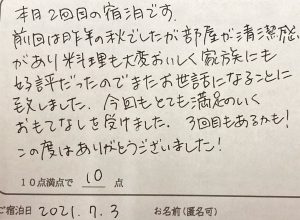 本日2回目の宿泊です。
前回は昨年の秋でしたが部屋が清潔感
があり料理も大変おいしく家族にも
好評だったのでまたお世話になることに
致しました。今回もとても満足のいく
おもてなしを受けました。3回目もあるかも!
この度はありがとうございました!
10点満点で 10 点
ご宿泊日 2021.7.3 お名前(匿名可)